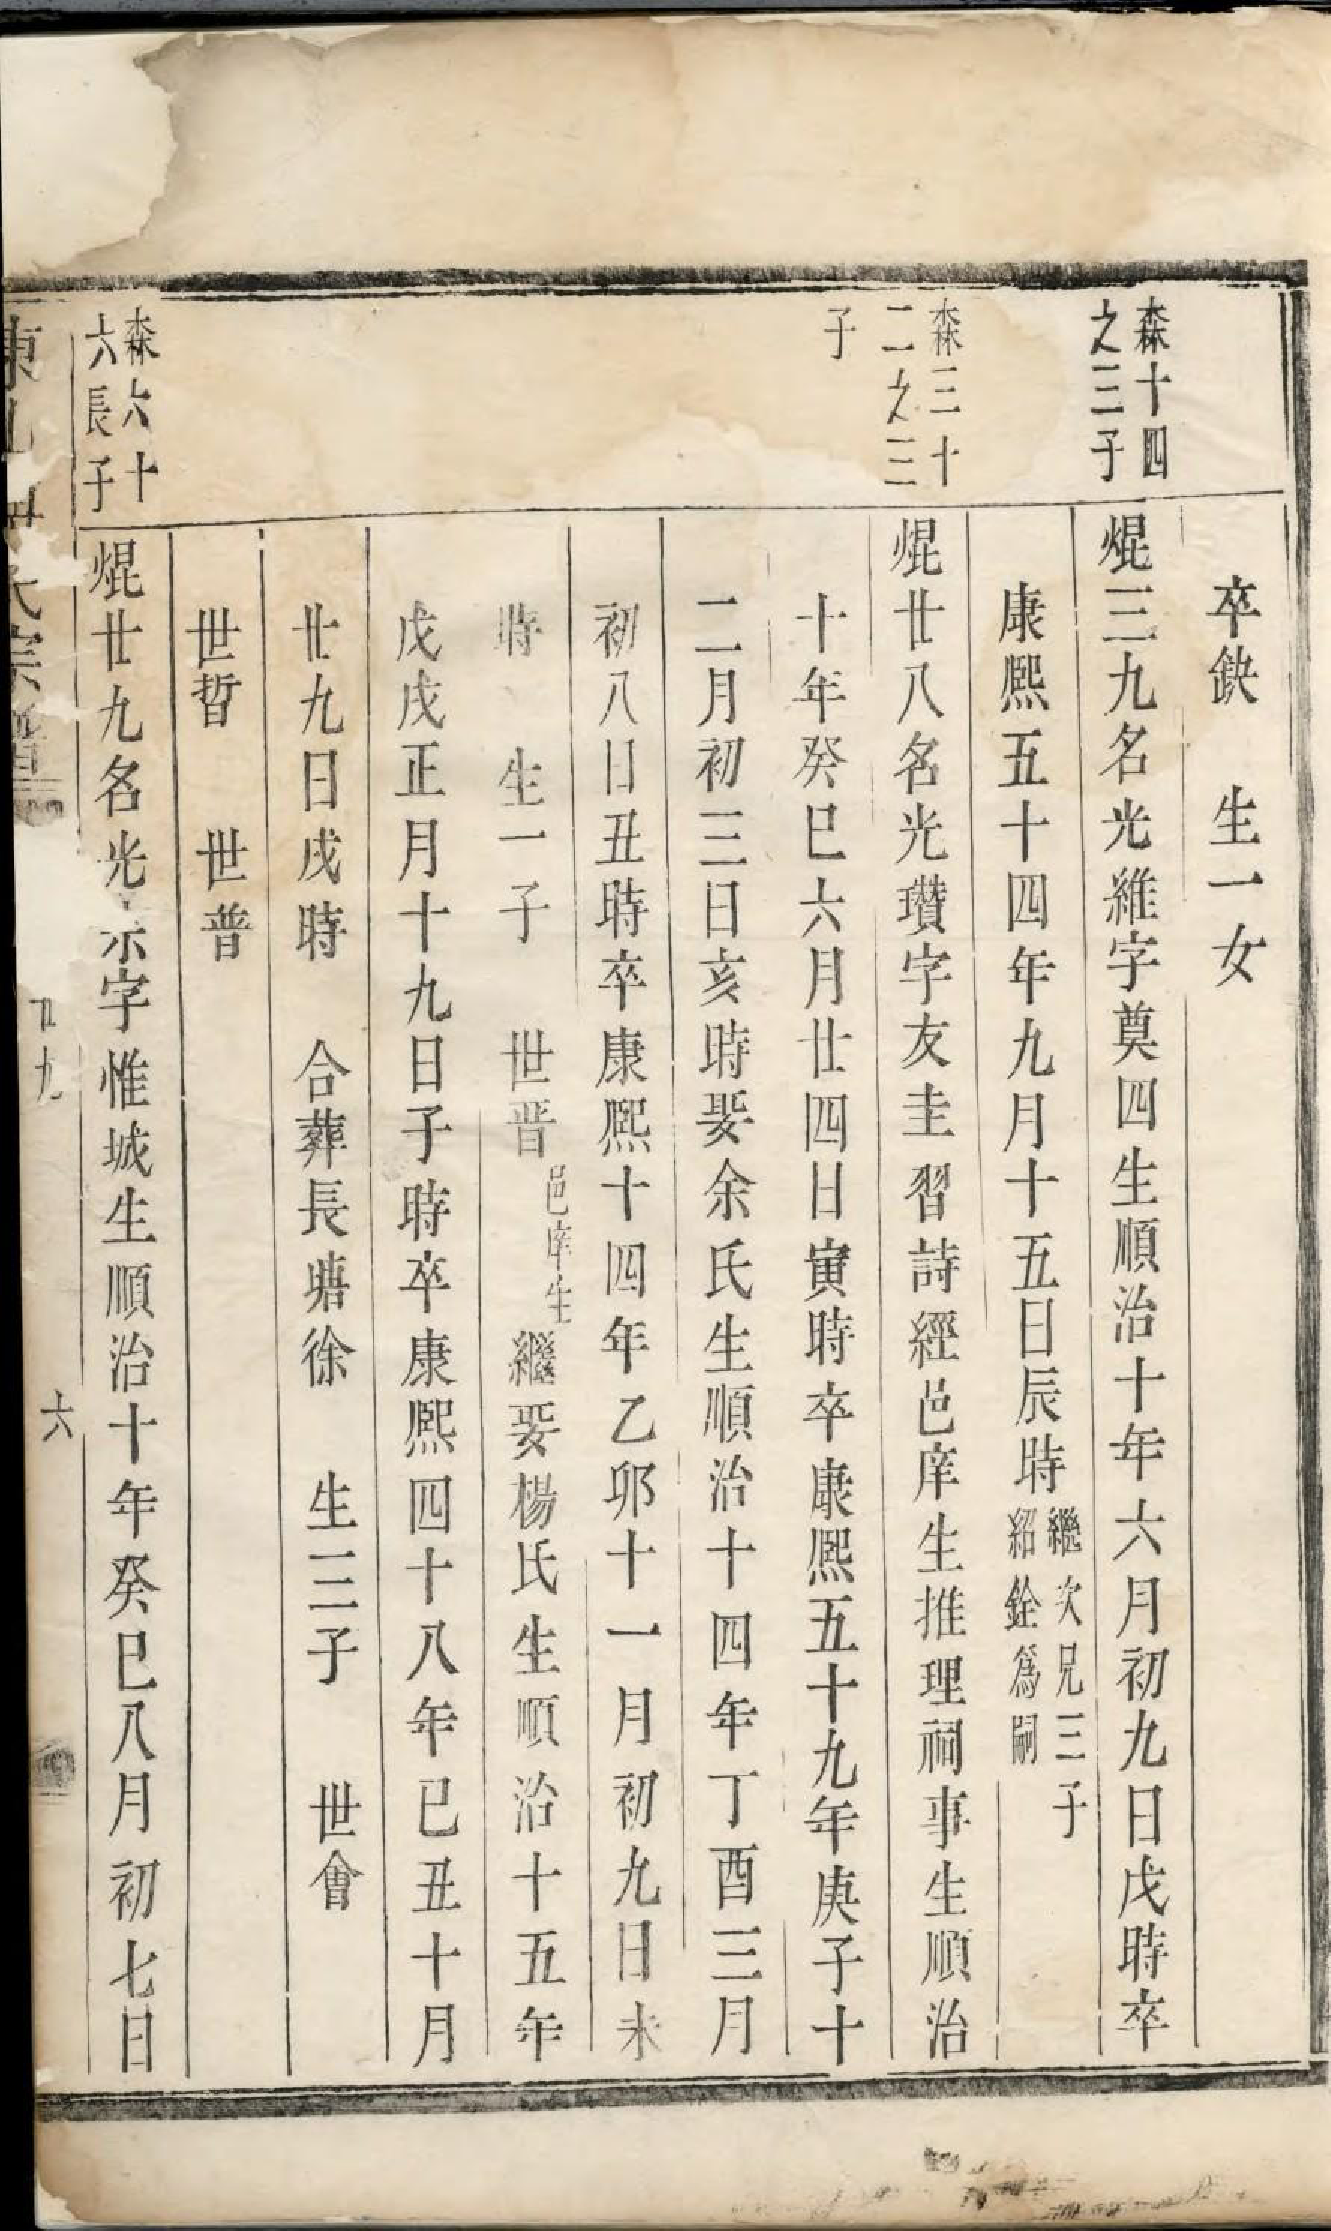 卒缺　生一女
森十四
之三子
焜三九名光維字奠四生順治十年六月初九日戌時卒
康熙五十四年九月十五日辰時
繼次兄三子
紹銓爲嗣
森三十
二之三
子
焜廿八名光瓚字友圭習詩經邑庠生推理祠事生順治
十年癸巳六月廿四日寅時卒康熙五十九年庚子十
二月初三日亥時娶余氏生順治十四年丁酉三月
初八日丑時卒康熙十四年乙卯十一月初九日未
時　生一子　世晋
邑庠生
繼娶楊氏生順治十五年
戊戌正月十九日子時卒康熙四十八年己丑十月
廿九日戌時　合葬長塘徐　生三子　世會
世晢　世普
森六十
六長子
焜廿九名光字惟城生順治十年癸巳八月初七日
氏宗譜
九
六